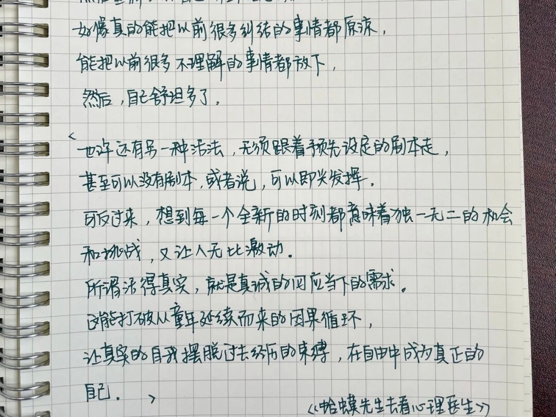 好像真的能把以前很多纠结的事情都原谅，
能把以前很多不理解的事情都放下，
然后，自己舒坦多了。
<也许还有另一种活法，无须跟着预先设定的剧本走，
甚至可以没有剧本，或者说，可以即兴发挥。
可反过来，想到每一个全新的时刻都意味着独一无二的机会
和挑战，又让人无比激动。
所谓活得真实，就是真诚的回应当下的需求。
既能打破从童年延续而来的因果循环，
让真实的自我摆脱过去经历的束缚，在自由中成为真正的
自己。>
《蛤蟆先生去看心理医生》